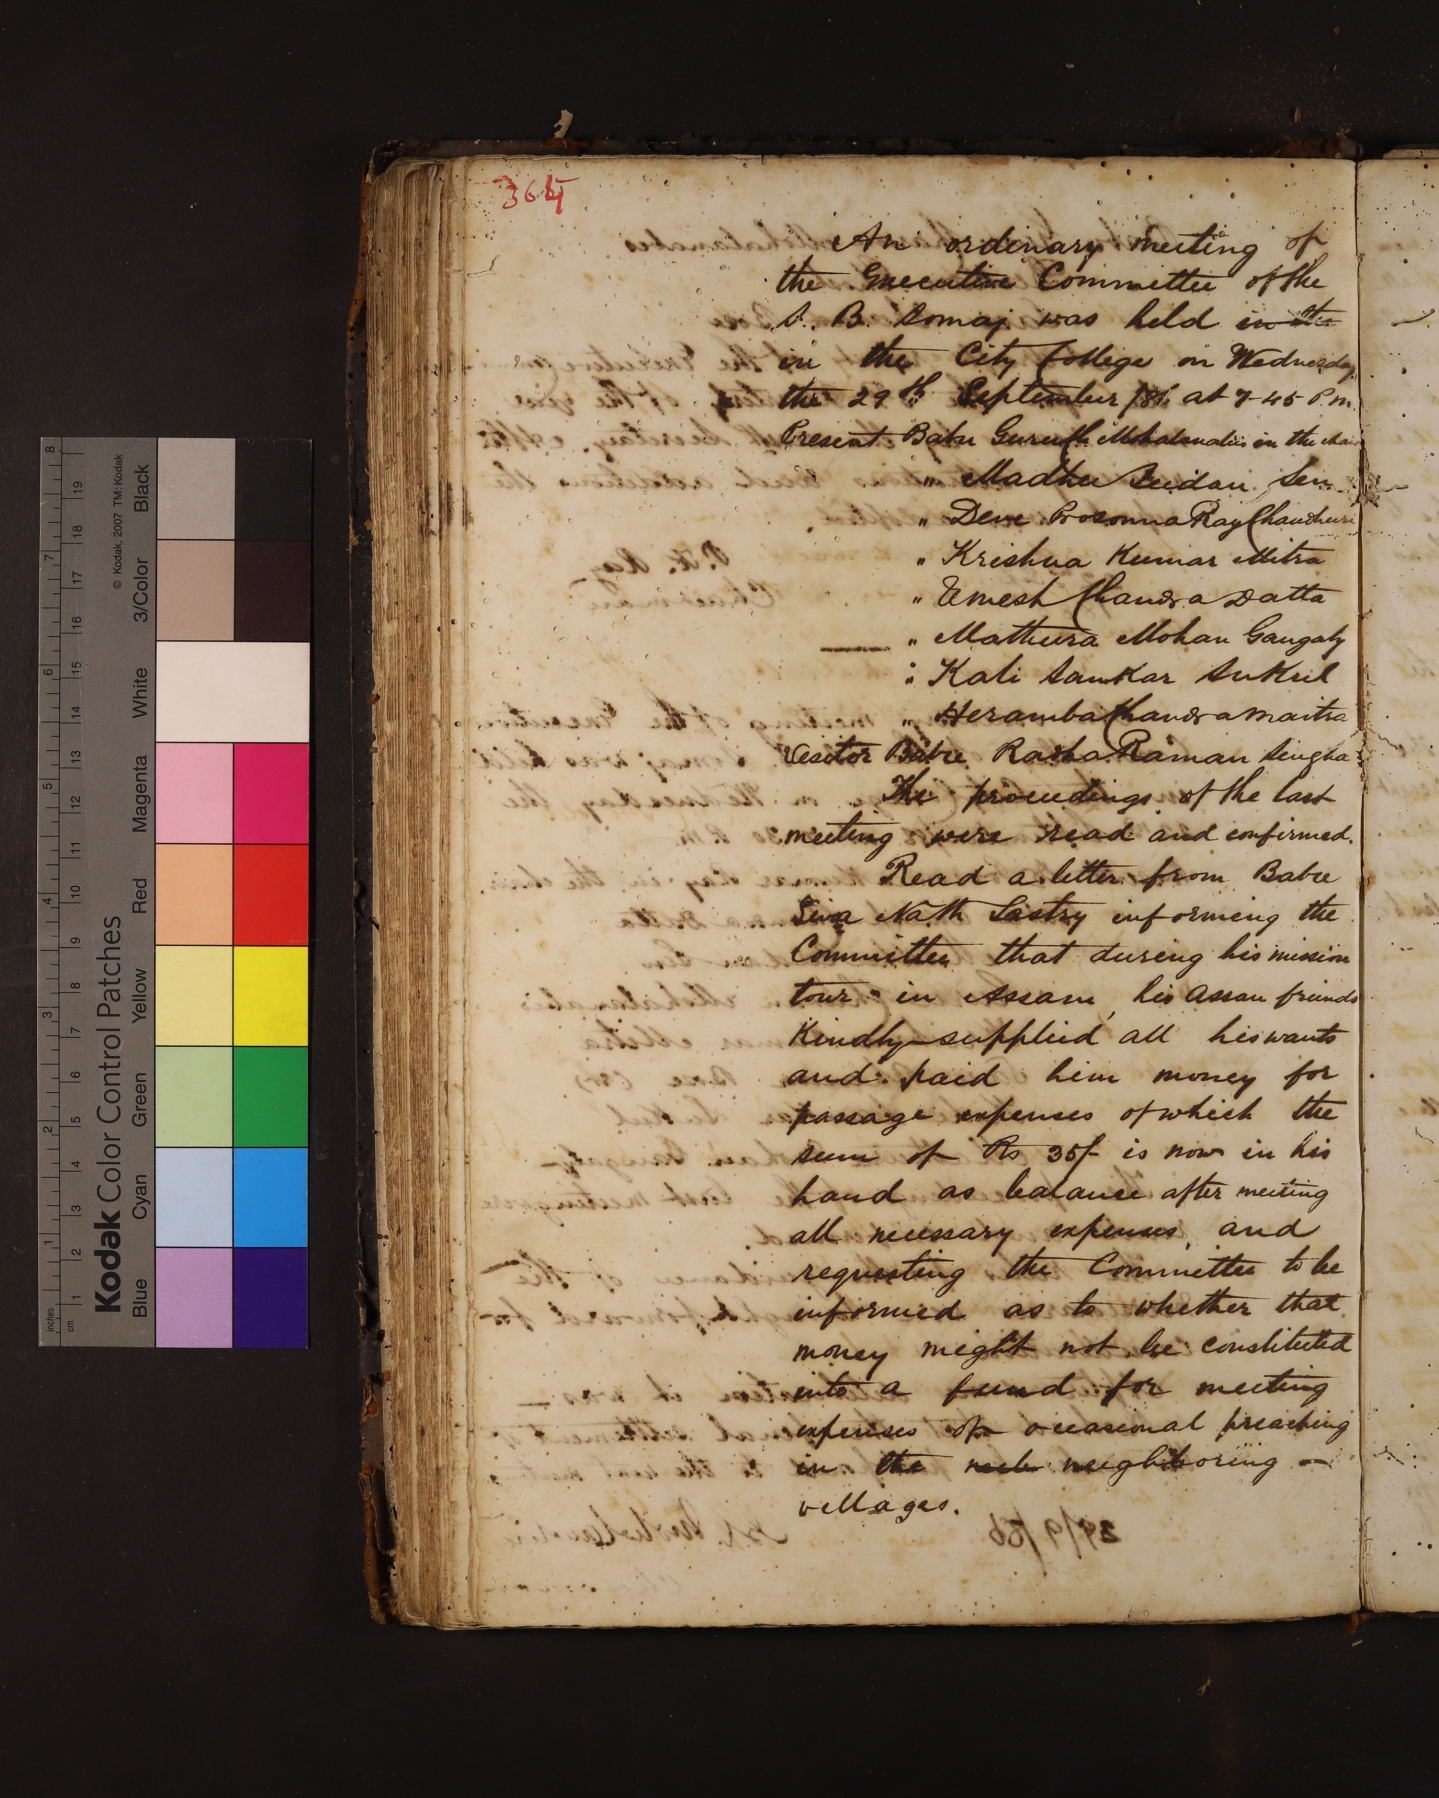 364
An ordinary meeting of
the Executive Committee of the
S. B. Somaj was held in the
in the City College on Wednesday
the 29th September /86 at 7-45 P.m.
Present Babu Guru Ch Mohalanabis in the chair
" Madhu Sudan Sen
" Devi Prosonna Ray Chaudhuri
" Krishna Kumar Mitra
" Umesh Chandra Datta
" Mathura Mohan Gangaly
" Kali Sankar Sukul
" Heramba Chandra Maitra
Visitor Babu Radha Raman Singha
The proceedings of the last
meeting were read and confirmed.
Read a letter from Babu
Siva Nath Sastry informing the
Committee that during his mission
tour in Assam, his Assam friends
Kindly supplied all his wants
and paid him money for
passage expenses of which the
sum of Rs 35/- is now in his
hand as balance after meeting
all necessary expenses, and
requesting the Committee to be
informed as to whether that
money might not be constituted
into a fund for meeting
expenses of occasional preaching
in the neghboring
villages.
Kodak Color Control Patches
© Kodak, 2007 TM: Kodak
Blue Cyan Green Yellow Red Magenta White 3/Color Black
inches 1 2 3 4 5 6 7 8
cm 1 2 3 4 5 6 7 8 9 10 11 12 13 14 15 16 17 18 19